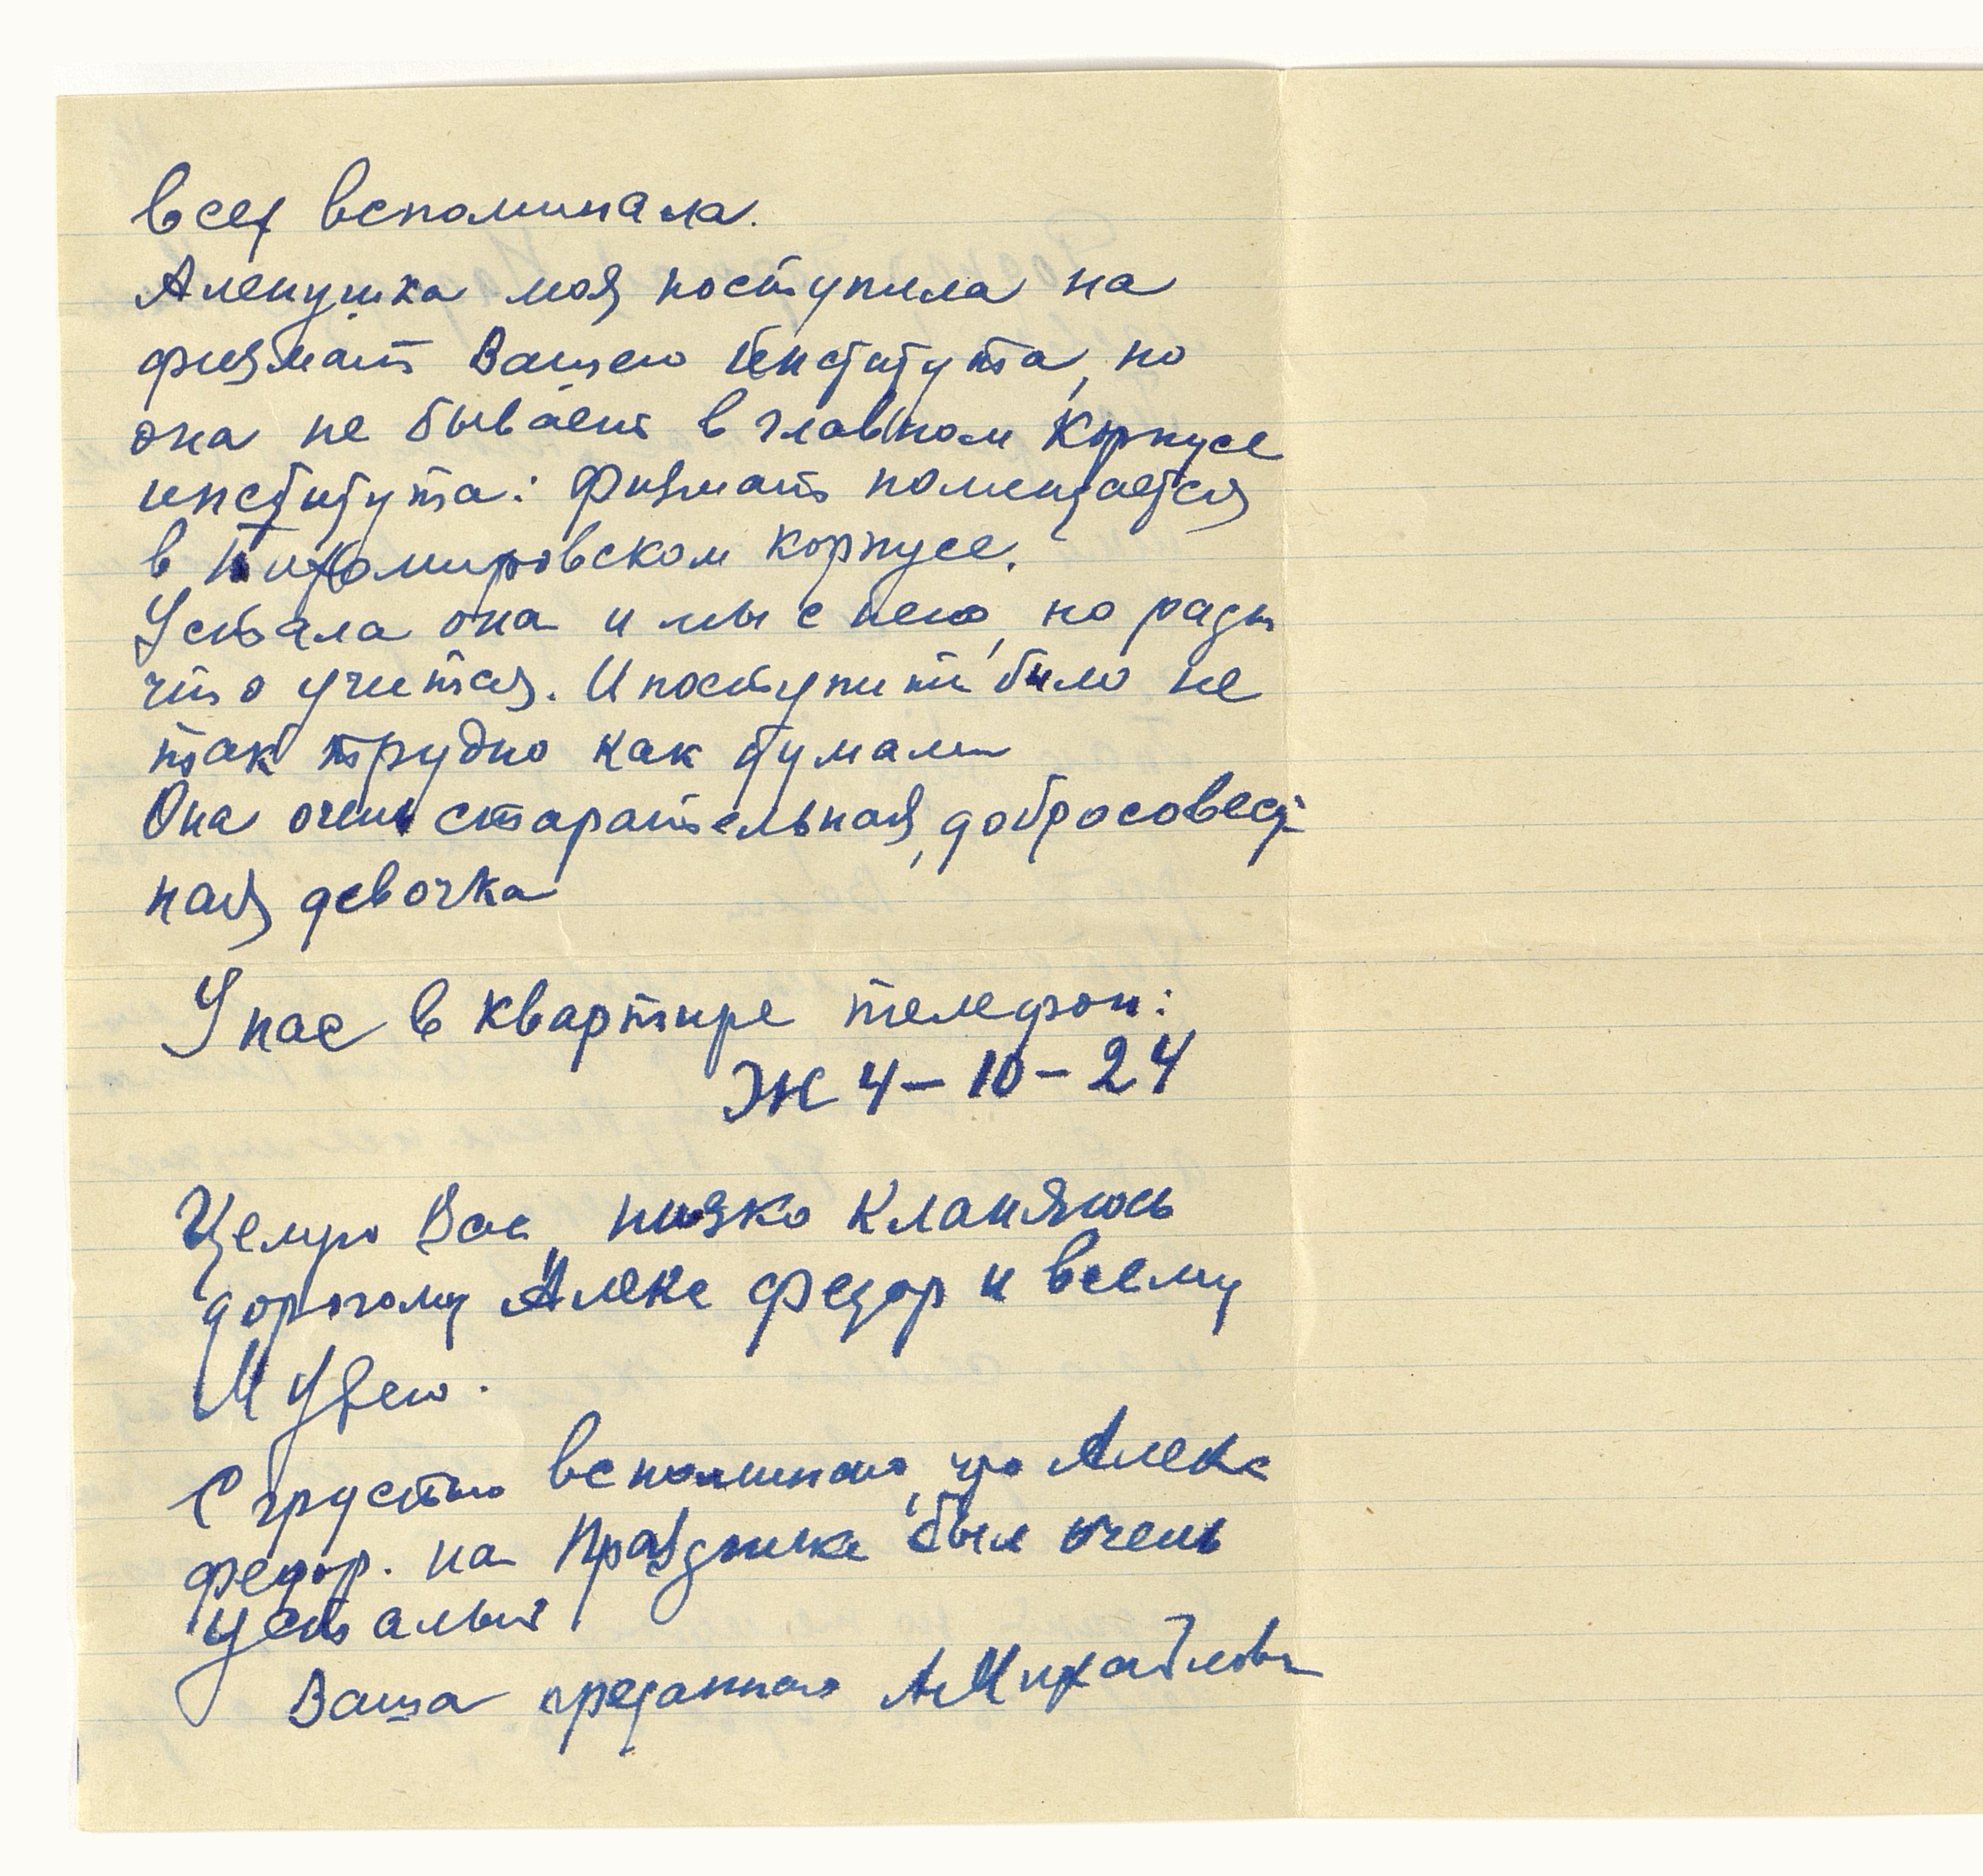 всех вспоминала.
Аленушка моя поступила на
физмат Вашего Института, но
она не бывает в главном корпусе
института: физмат помещается
в Тихомировском корпусе.
Устала она и мы с нею, но рады
что учится. И поступить было не
так трудно как думали
Она очень старательная, добросовест-
ная девочка
У нас в квартире телефон:
Ж 4-10-24
Целую Вас, низко кланяюсь
дорогому Алекс Федор и всему
Музею.
С грустью вспоминаю, что Алекс
Федор. на Празднике был очень
усталый
Ваша преданная А Михайлова